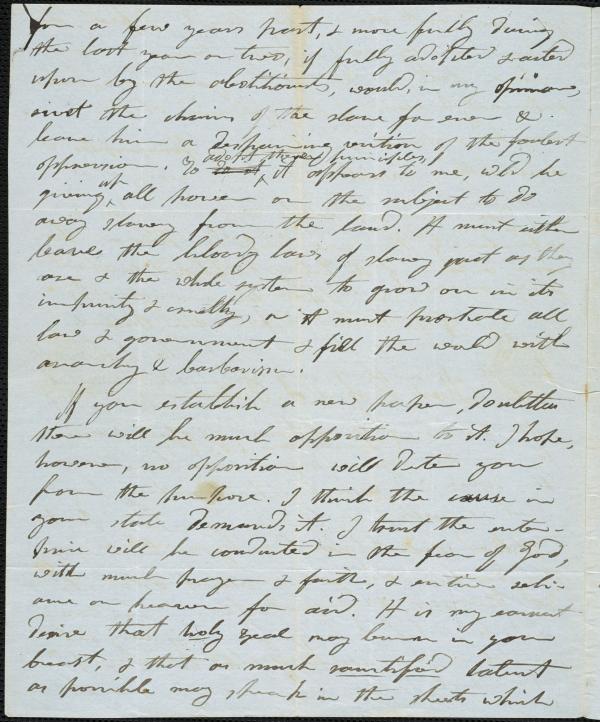 for a few years past, & more fully during
the last year or two, if fully adopted & acted
upon by the abolitionists, would, in my opinion,
rivet the chains of the slave for ever &
leave him a despairing victim of the foulest
oppression. To adopt these principles, it appears to me, wd. be
giving up all power on the subject to do
away slavery from the land. It must either
leave the bloody laws of slavery just as they
are & the whole system to grow on in its
impurity & cruelty, or it must prostrate all
law & government & fill the world with
anarchy & barbarism.
If you establish a new paper, doubtless
there will be much opposition to it. I hope,
however, no opposition will deter you
from the purpose. I think the cause in
your state demands it. I trust the enter-
prise will be conducted in the fear of God,
with much prayer & faith, & entire reli-
ance on heaven for aid. It is my earnest
desire that holy zeal may burn in your
breast, & that as much sanctified talent
as possible may speak in the sheets which